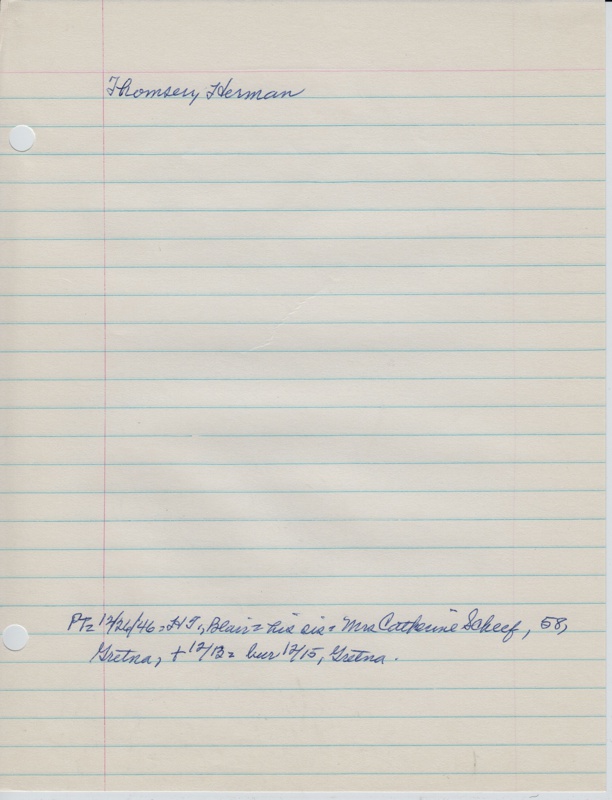 Thomsen, Herman
PT= 12/26/46= H T., Blair= his sis= Mrs Catherine Scheef, 58,
Gretna, + 12/13= bur 12/15, Gretna.